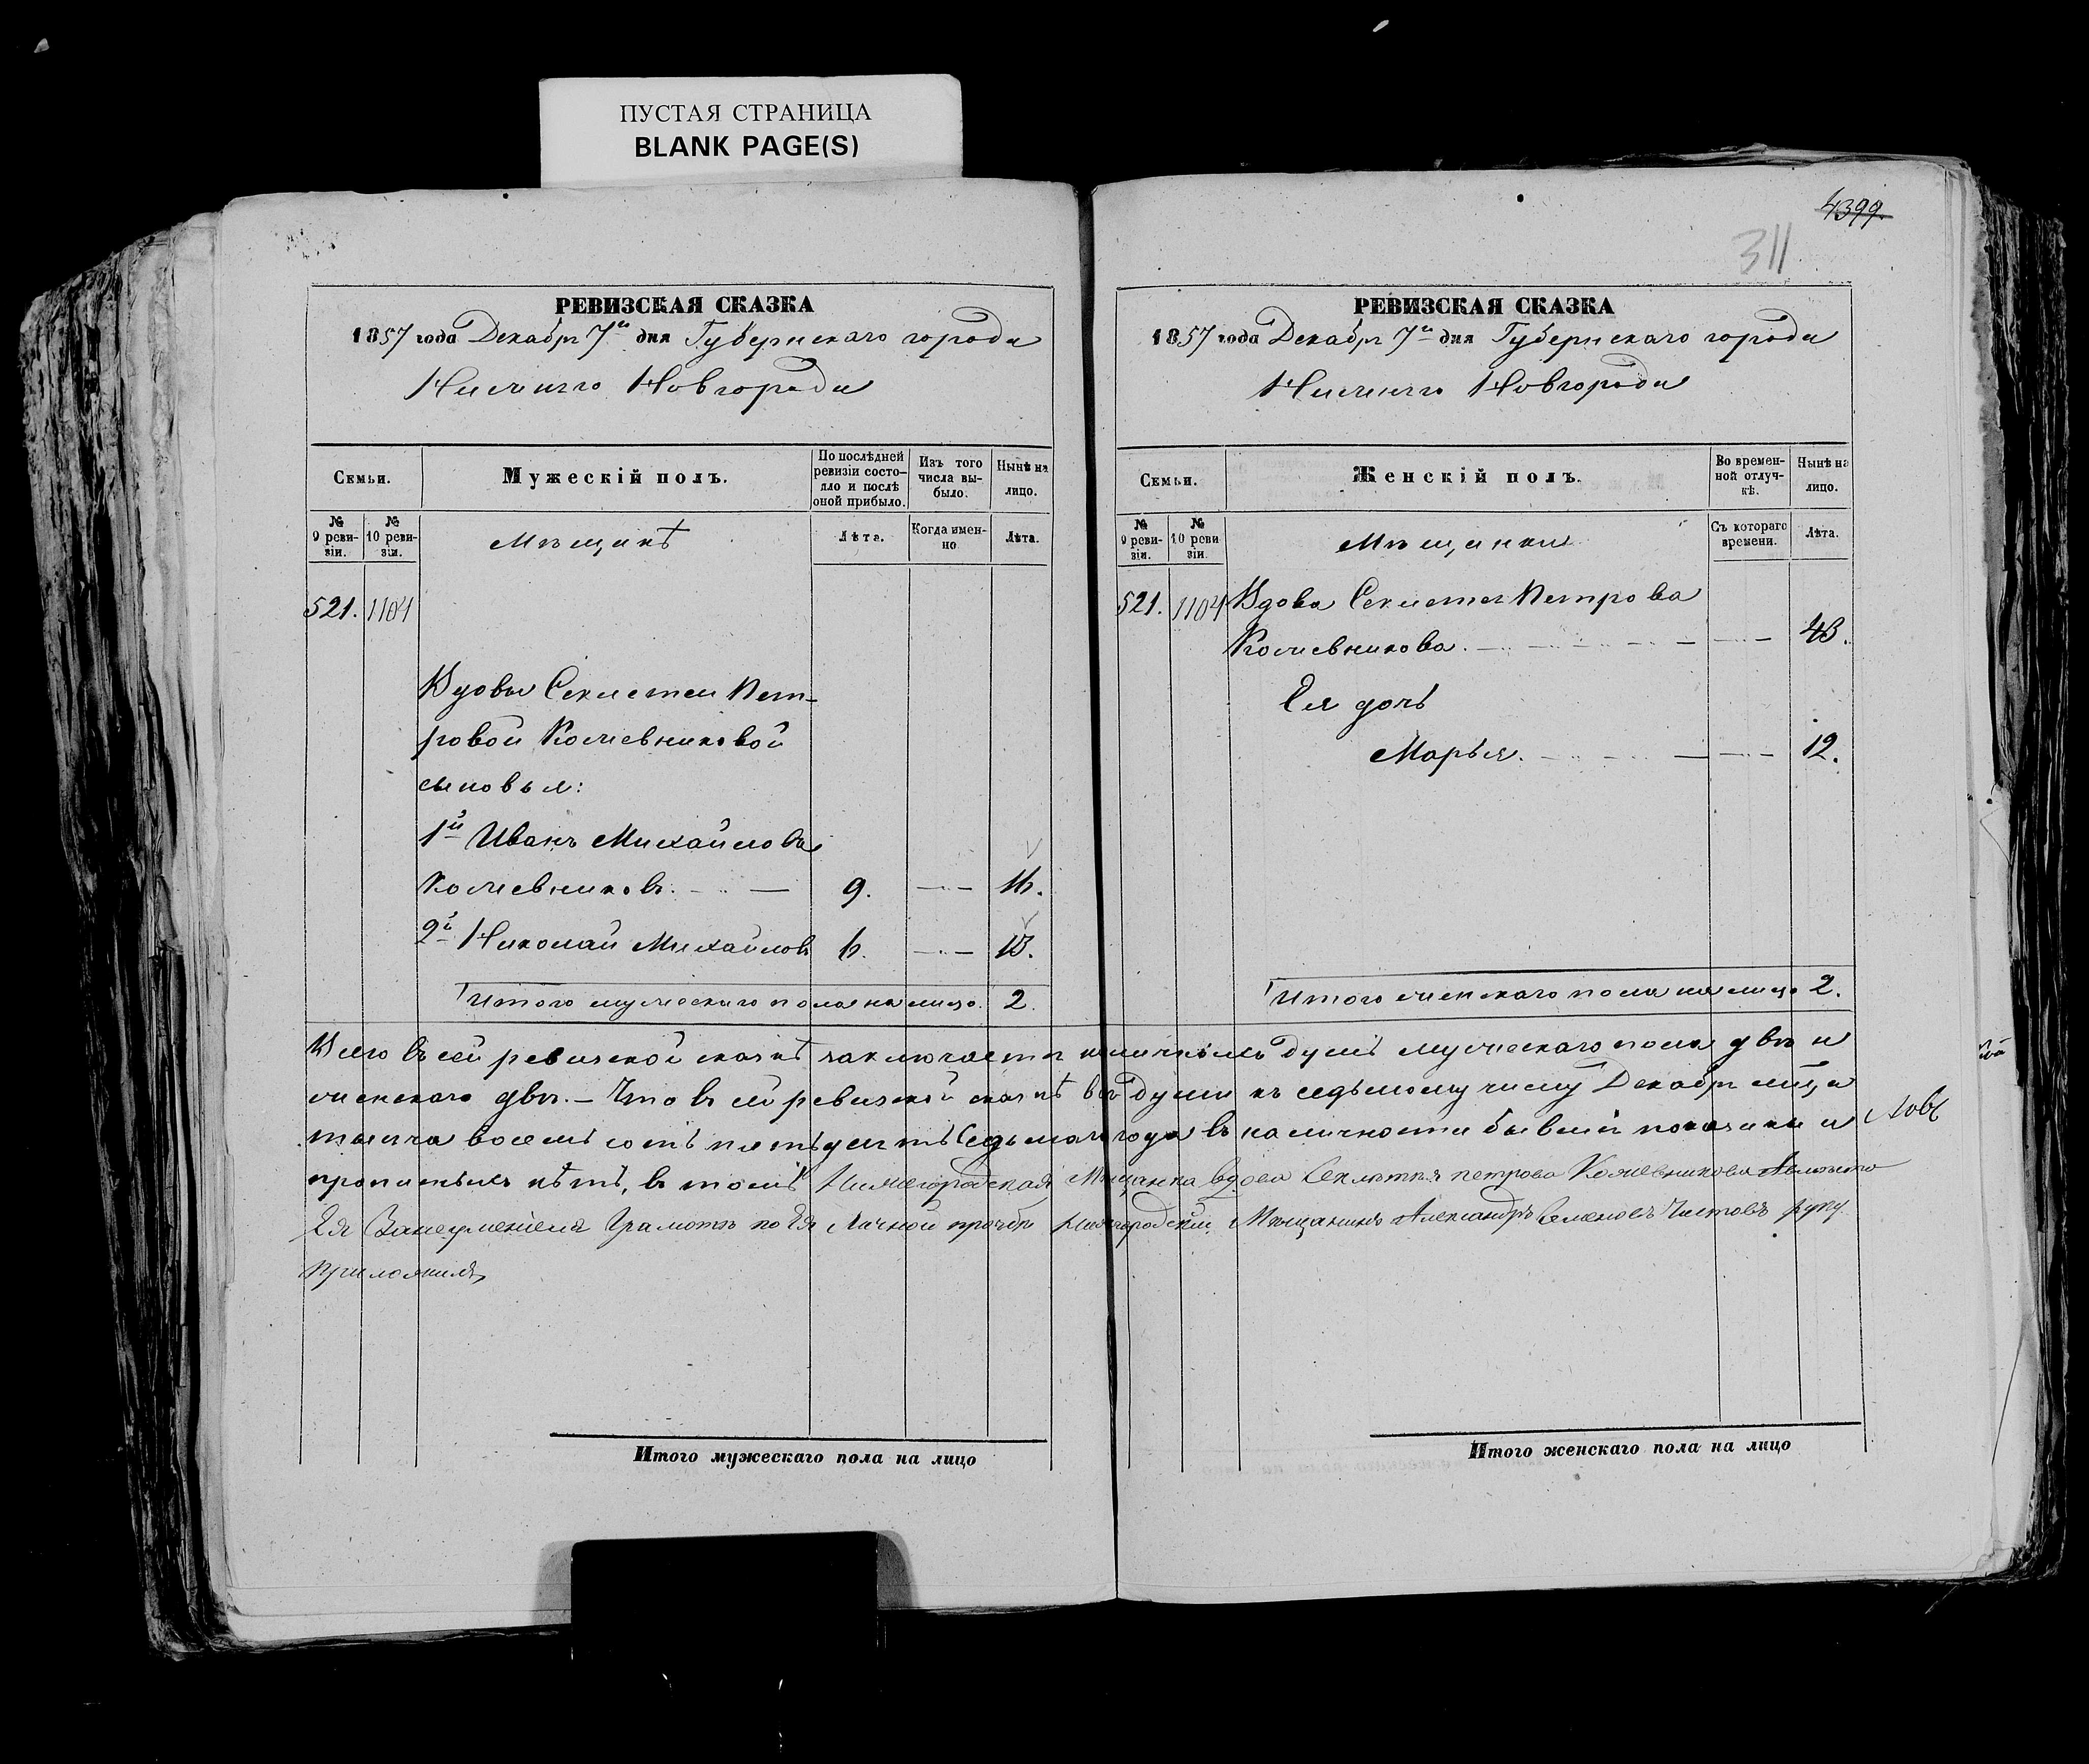 ПУСТАЯ СТРАНИЦА
BLANK PAGE(S)
РЕВИЗСКАЯ СКАЗКА
1857 года Декабря 7го дня Губернскаго города
Нижняго Новгорода
Семьи.
Мужескій полъ.
По послѣдней ревизіи состояло и послѣ оной прибыло.
Изъ того числа выбыло.
Нынѣ на лицо.
№ 9 ревизіи.
№ 10 ревизіи.
Мѣщанѣ
Лѣта.
Когда именно
Лѣта.
521. 1104
Вдовы Секлетеи Пет-
ровой Кожевниковой
сыновья:
1й Иванъ Михайловъ
Кожевниковъ. 9. 16.
2й Николай Михайловъ 6. 13.
Итого мужескаго пола на лицо. 2.
4399.
311
РЕВИЗСКАЯ СКАЗКА
1857 года Декабря 7го дня Губернскаго города
Нижняго Новгорода
Семьи.
Женскій полъ.
Во временной отлучкѣ.
Нынѣ на лицо.
№ 9 ревизіи.
№ 10 ревизіи.
Мѣщанки
Съ котораго времени.
Лѣта.
521. 1104 Вдова Секлетея Петрова
Кожевникова. 43.
Ея дочь
Марья. 12.
Итого женскаго пола на лицо 2.
Всего въ сей ревизской сказкѣ заключается наличныхъ душъ мужескаго пола двѣ и
женскаго двѣ. – Что въ сей ревизской сказкѣ всѣ души къ седьмому числу Декабря мца
тысяча восемь сотъ пятьдесятъ седьмаго года въ наличности бывшія показаны и
прописныхъ нѣтъ, въ томъ Нижегородская Мѣщанка вдова Секлетея петрова Кожевникова Авместо
Ея Занеуменіемъ Грамотѣ по Ея Личной прозбѣ Нижегородскій Мѣщанинъ Александръ Семеновъ Чистовъ руку
Приложилъ
Итого мужескаго пола на лицо
Итого женскаго пола на лицо